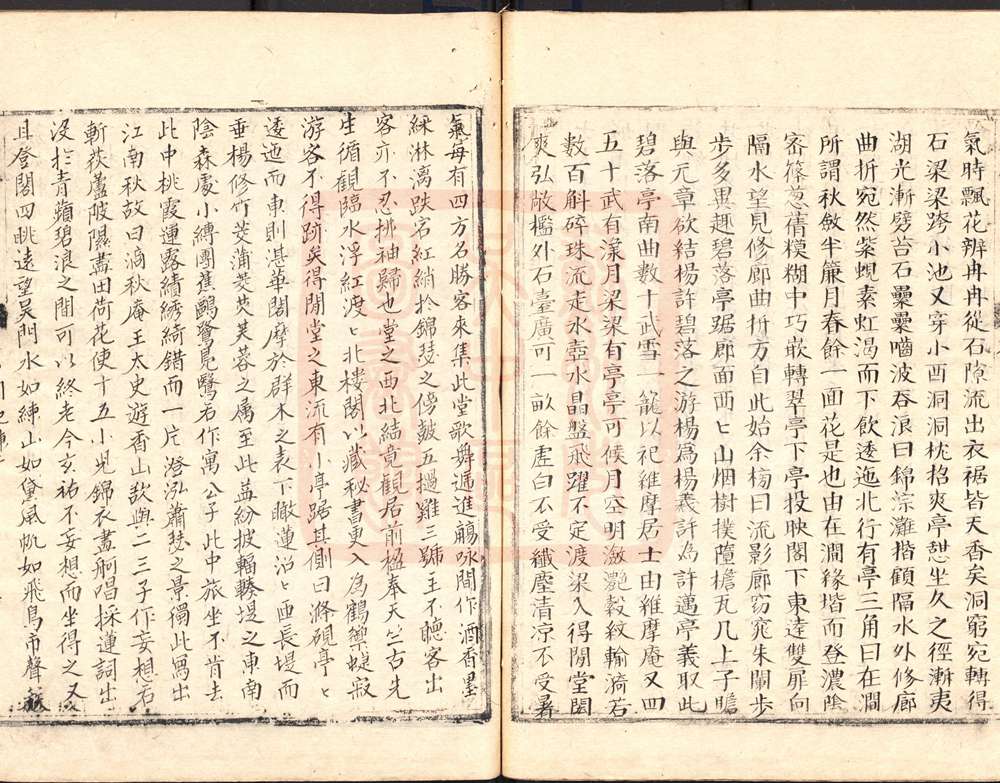 氣時飄花辨冉冉從石隙流出衣裾皆天香矣洞窮宛轉得
石梁梁跨小池又穿小酉洞洞枕招爽亭憇坐久之徑漸夷
湖光漸劈苔石纍纍嚙波吞浪曰錦淙灘揩顧隔水外修廊
曲折宛然紫蜺素虹渴而下飲逶迤北行有亭三角曰在澗
所謂秋斂半簾月春餘一面花是也由在澗緣堦而登濃陰
密篠葱蒨糢糊中巧嵌轉翠亭下亭投映閣下東達雙扉向
隔水望見修廊曲折方自此始余榜曰流影廊窈窕朱闌步
步多異趣碧落亭踞廊面西ヒ山烟樹撲墮檐瓦几上子瞻
與元章欲結楊許碧落之游楊爲楊羲許為許邁亭義取此
碧落亭南曲數十武雪一龕以祀維摩居士由維摩庵又四
五十武有漾月梁梁有亭亭可候月空明瀲灧縠紋輪漪若
數百斛碎珠流走水壺水晶盤飛躍不定渡梁入得閒堂閎
爽弘敞檻外石臺廣可一畝餘虗白不受纖塵清凉不受暑
氣每有四方名勝客來集此堂歌舞遞進觴咏閒作酒香墨
綵淋漓跌宕紅綃扵錦瑟之傍皷五撾雞三號主不聽客出
客亦不忍挑袖歸也堂之西北結竟觀居前楹奉天竺古先
生循觀臨水浮紅渡ヒ北楼閣以藏秘書更入為鶴籞蝯寂
游客不得跡矣得閒堂之東流有小亭踞其側曰滌硯亭ヒ
逶迤而東則湛華閣摩於群木之表下瞰蓮沼ヒ西長堤而
垂楊修竹茭蒲菱芡芙蓉之属至此益紛披輻輳堤之東南
陰森處小縛團蕉鷗鷺鳧鷖若作寓公于此中旅坐不肯去
此中桃霞蓮露績綉綺錯而一片澄泓蕭瑟之景獨此寫出
江南秋故曰滴秋庵王太史遊香山歎與二三子作妄想若
斬荻蘆陂隰盡田荷花使十五小兒錦衣畫舸唱採蓮詞出
没扵青蘋碧浪之間可以終老今玄祐不妄想而坐得之又
且登閣四眺遠望吴門水如練山如黛風帆如飛鳥市聲